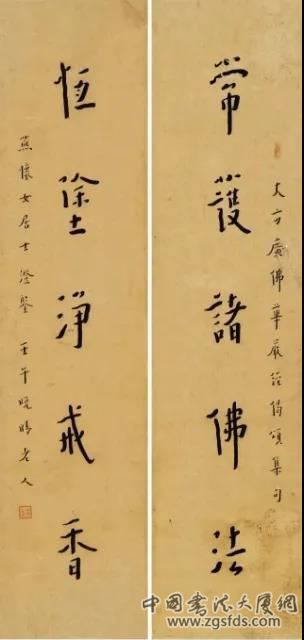 大方廣佛華嚴經偈頌集句
常護諸佛法
恒塗淨戒香
懷女居士澄鑒 壬午晚晴老人
中國書法大厦網
www.zgsfds.com